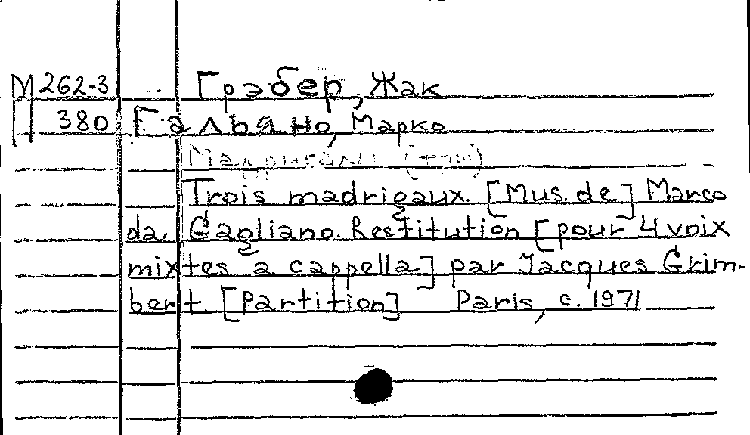 М 262-3 Грэбер, Жак
380 Гальяно, Марко
Мадригалы (три)
Trois madrigaux. [Mus. de] Marco
da Gagliano. Restitution [pour 4 voix
mixtes a cappella] par Jacques Grim-
bert. [Partition] Paris, c. 1971